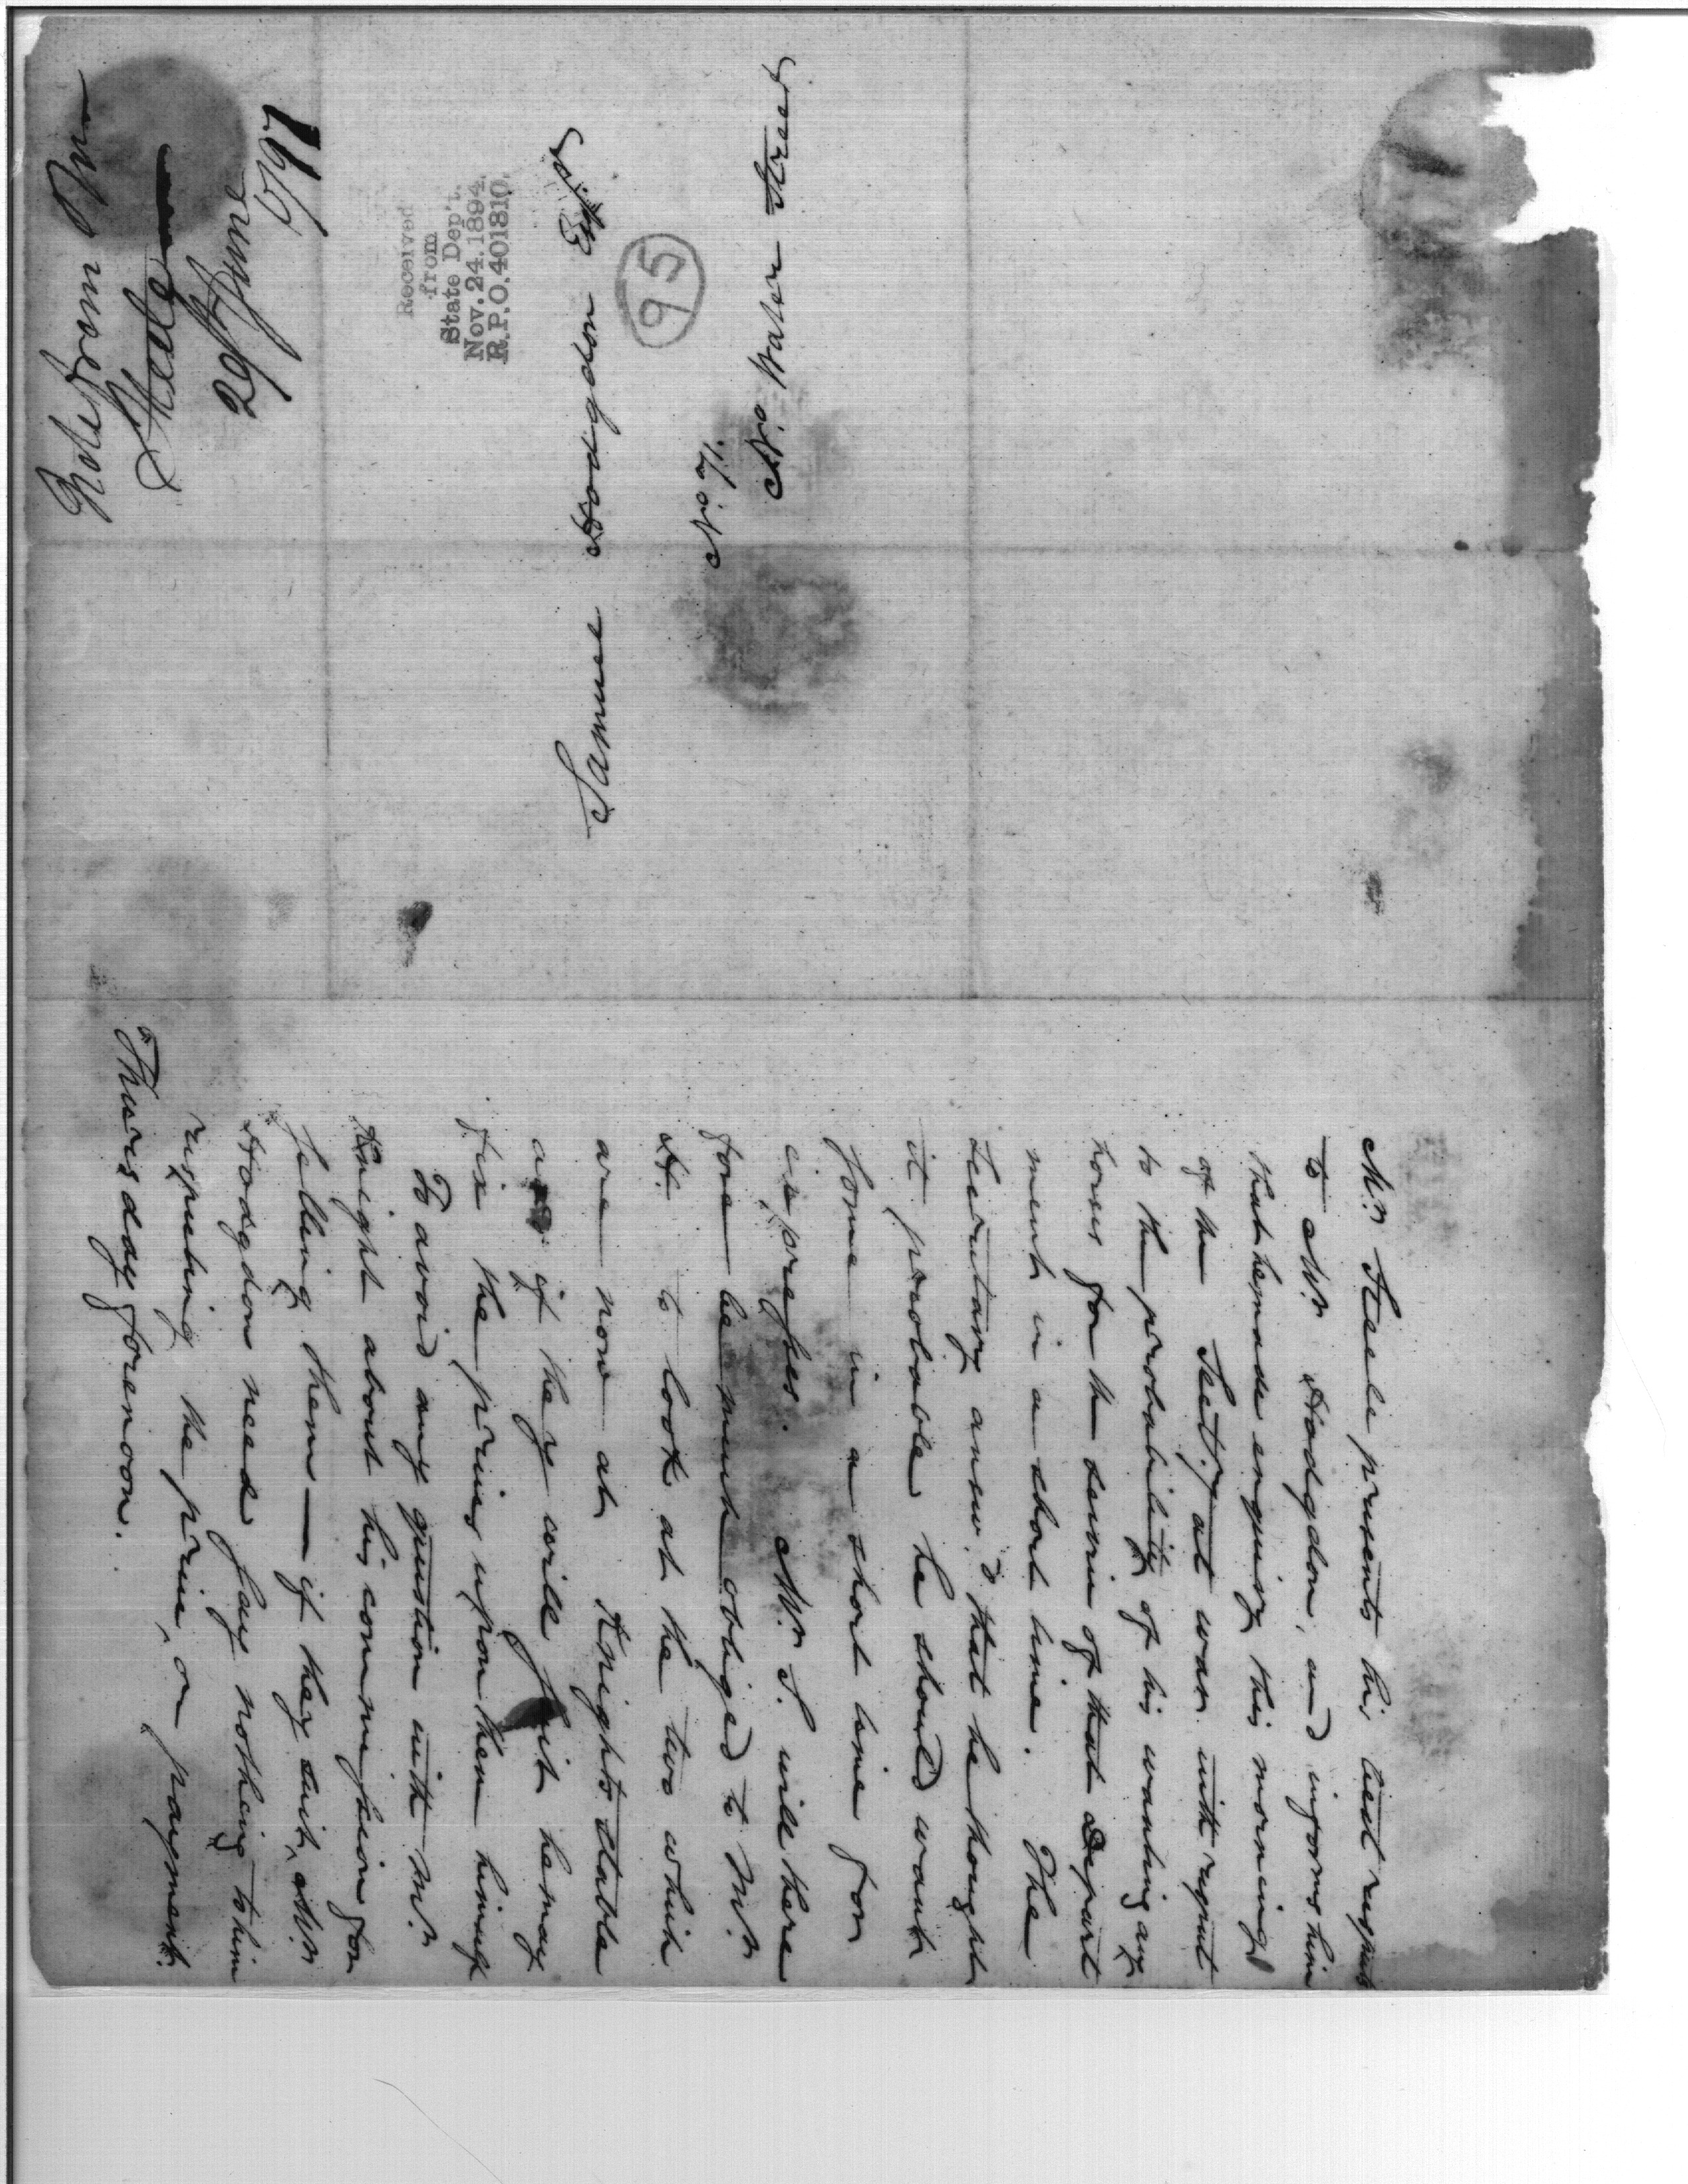 Mr. Steele presents his best respects
to Mr. Hodgdon, and informs him
that he made enquiry this morning
of the Sect'ry at war with respect
to the probability of his wanting any
horses for the service of that Depart
ment in a short time. The
Secretary answ.d that he thought
it probable he should want
some in a short time for
expresses. Mr. S. will there
fore be much obliged to Mr.
H. to look at the two which
are now at Knights stable
and if they will suit he may
fix the prices upon them himself
To avoid any question with Mr.
Knight about his commission for
selling them — if they suit, Mr.
Hodgdon need say nothing to him
respecting the price, or payment.
Thursday forenoon.
Samuel Hodgdon Esqr.
No. 71.
No. Water Street
95
Received
from
State Dep't.
Nov. 24. 1894.
R.P.O. 401810.
Note from Mr.
Steele
29 June
1797